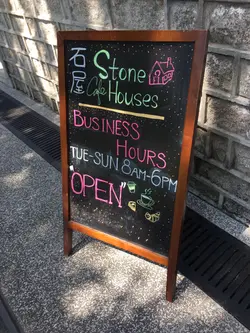 石屋
Stone
Cafe
Houses
BUSINESS
HOURS
TUE-SUN 8AM-6PM
"OPEN"